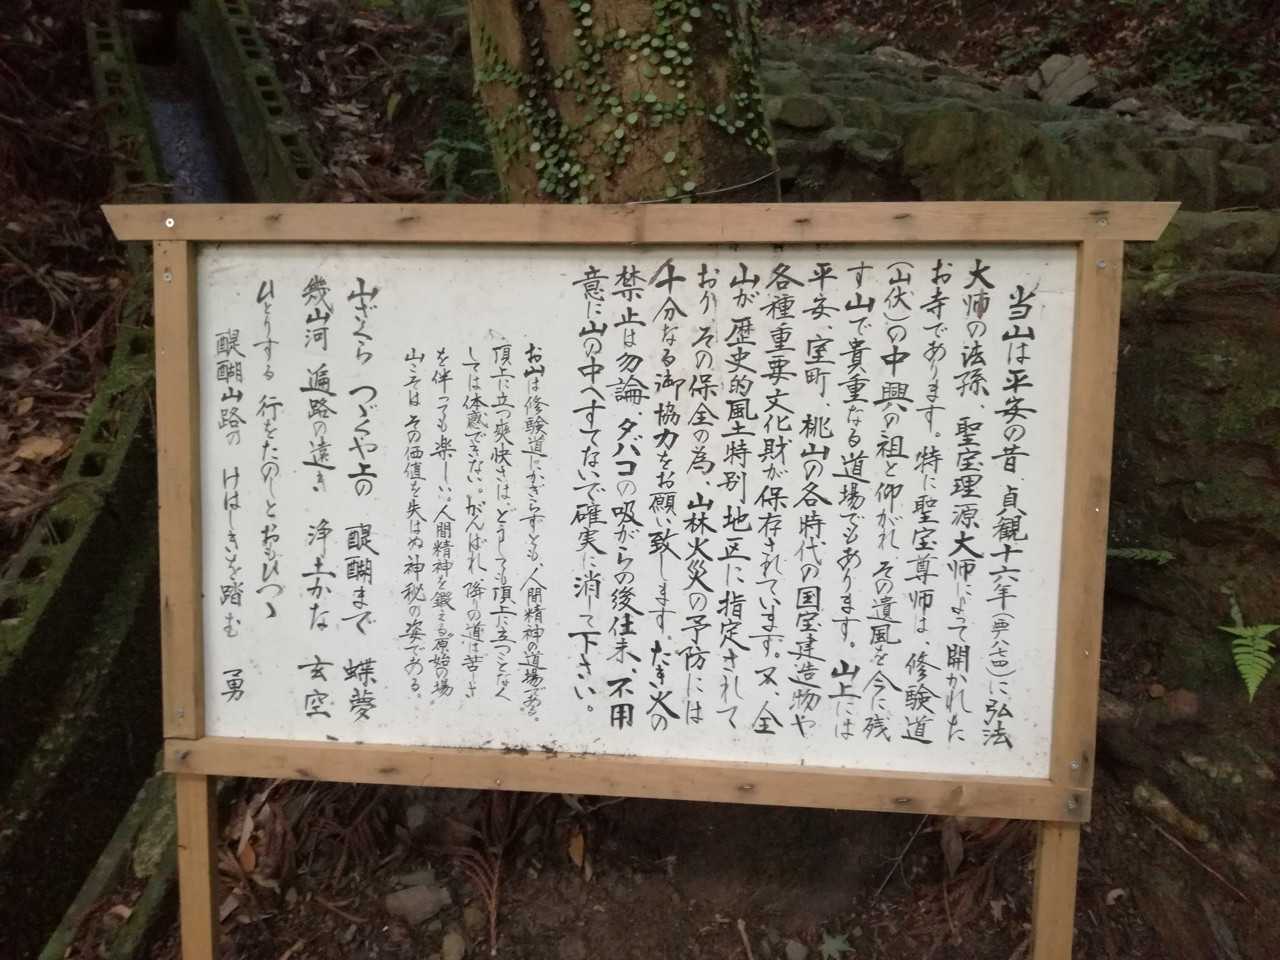 当山は平安の昔、貞観十六年(西八七四)に弘法
大師の法孫、聖宝理源大師によって開かれた
お寺であります。特に聖宝尊師は、修験道
(山伏)の中興の祖と仰がれ、その遺風を今に残
す山で貴重なる道場でもあります。山上には
平安、室町、桃山の各時代の国宝建造物や
各種重要文化財が保存されています。又、全
山が歴史的風土特別地区に指定されて
おり、その保全の為、山林火災の予防には
十分なる御協力をお願い致します。たき火の
禁止は勿論、タバコの吸がらの後仕末、不用
意に山の中へすてないで確実に消して下さい。
お山は修験道にかぎらずとも、人間精神の道場である。
頂上に立つ爽快さは、どうしても頂上に立つことなく
しては体感できない。がんばれ、降りの道は苦しさ
を伴っても楽しい。人間精神を鍛える原始の場
山こそは その価値を失はぬ神秘の姿である。
山ざくら つゞくや上の 醍醐まで 蝶夢
幾山河 遍路の遠き 浄土かな 玄空
ひとりする 行をたのしと おもひつゝ
醍醐山路の けはしきを踏む 勇